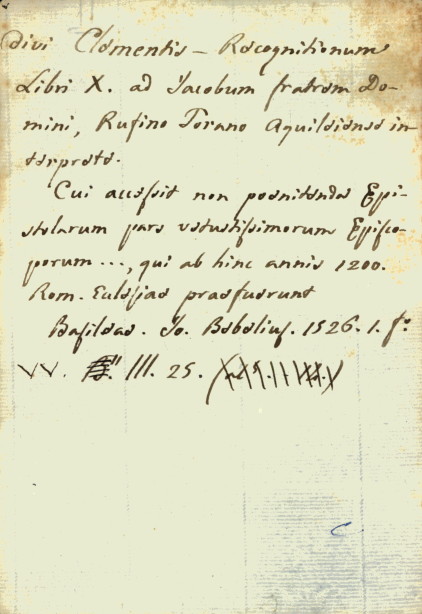 Divi Clementis – Recognitionum
Libri X. ad Jacobum fratrem Do-
mini, Rufino Torano Aquileiense in-
terprete.
Cui accessit non poenitenda Epi-
stolarum pars vetustissimorum Episco-
porum ..., qui ab hinc annis 1200.
Rom. Eclesiae praefuerunt
Basileae. Jo. Bebelius. 1526. 1. fo.
VV. III. 25.